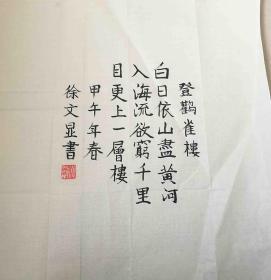 登鸛雀樓
白日依山盡黄河
入海流欲窮千里
目更上一層樓
甲午年春
徐文显書